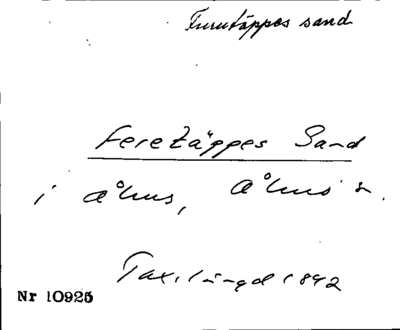 Furutäppes sand
Feretäppes Sand
i Åhus, Åhus s.
Tax.längd 1842
Nr 10925